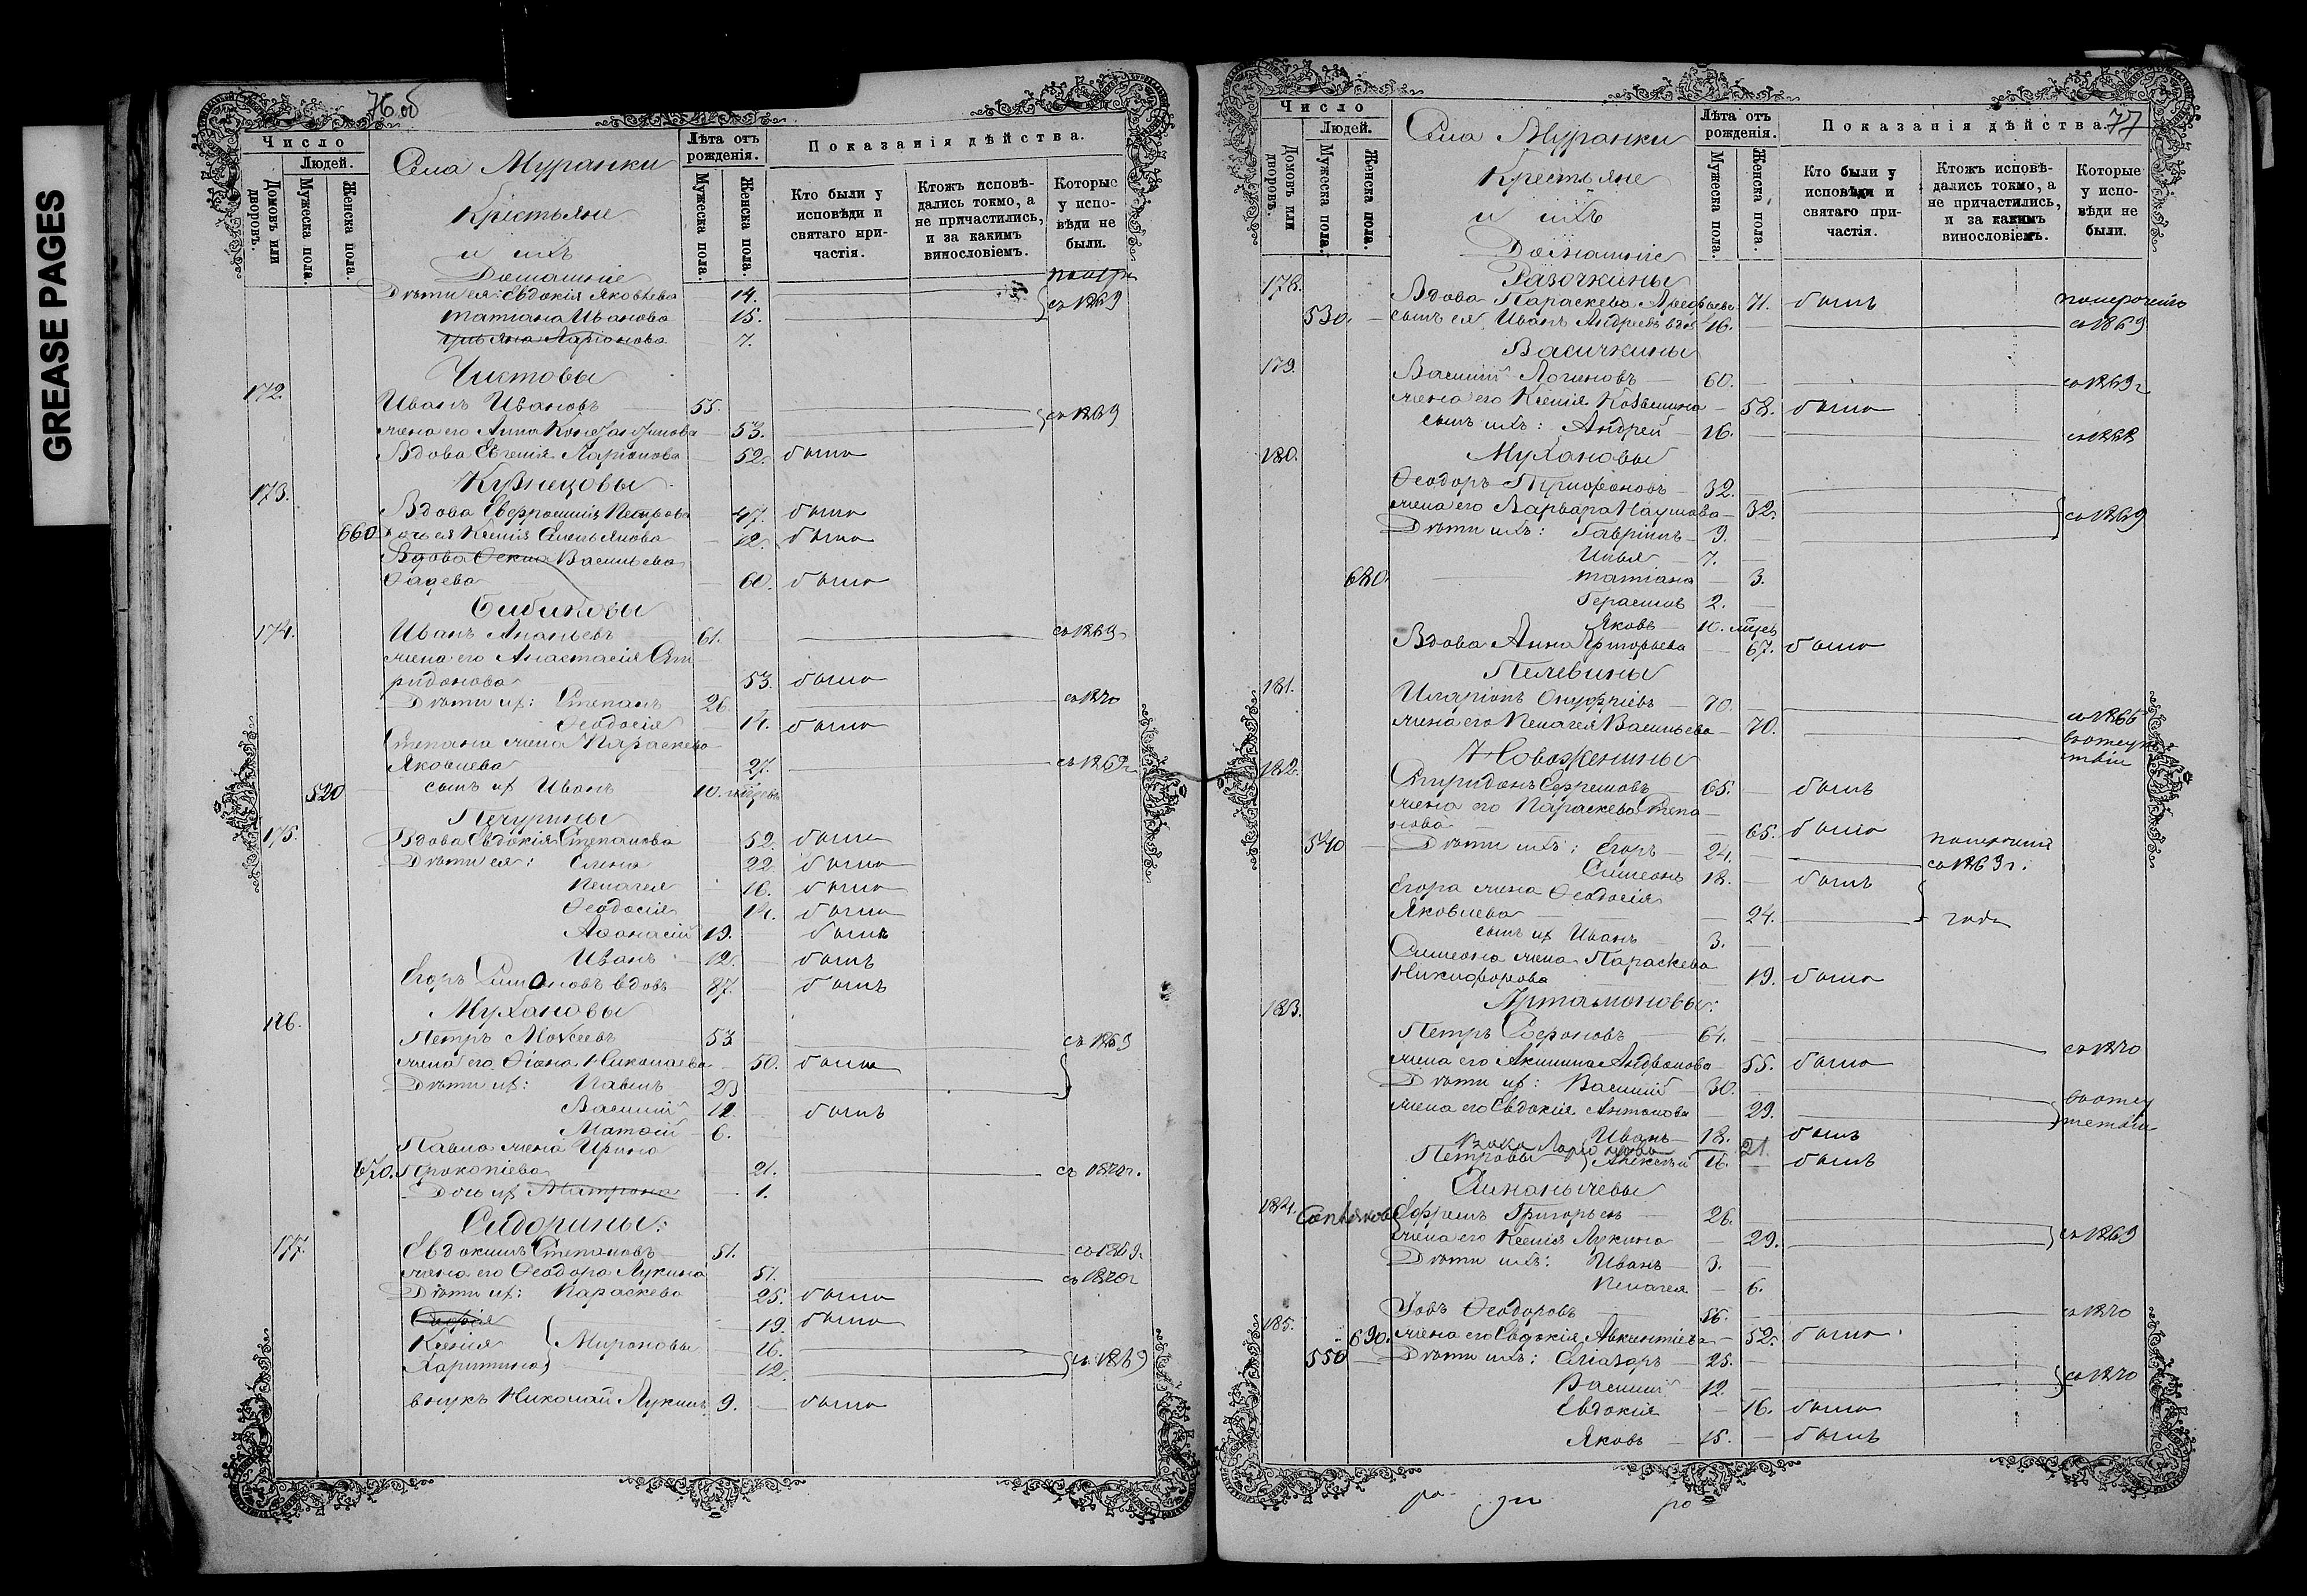 GREASE PAGES
76 об
Число
Людей.
Домовъ или дворовъ.
Мужеска пола.
Женска пола.
Села Муранки
Крестьяне
и ихъ
Домашніе
Лѣта отъ рожденія.
Мужеска пола.
Женска пола.
Показанія дѣйства.
Кто были у исповѣди и святаго причастія.
Ктожъ исповѣдались токмо, а не причастились, и за какимъ винословіемъ.
Которые у исповѣди не были.
Дѣти ея: Евдокія Яковлева 14.
Татіана Иванова 15. съ 1869
Ларіонова 7.
Чистовы
172.
Иванъ Ивановъ 55.
жена его Анна Константинова 53. съ 1869
Вдова Евгенія Ларіонова 52. была
Кузнецовы
173.
Вдова Евфросинія Петрова 47. была
660 Дочь ея Ксенія Емельянова 12. была
Вдова Васильева
Фадева 60. была
Бибиковы
174. Иванъ Ананьевъ 61. съ 1869
жена его Анастасія Спи-
ридонова 53. была
Дѣти их: Степанъ 26 съ 1870
Феодосія 14. была
Степана жена Параскева
Яковлева 27. съ 1869г
520 сынъ их Иванъ 10. мѣсяцевъ
Печурины
175. Вдова Евдокія Степанова 52. была
Дѣти ея: Елена 22. была
Пелагея 16. была
Феодосія 14. была
Афанасій 19. былъ
Иванъ 12. былъ
Егоръ Симоновъ вдовъ 87. былъ
Мухановы
176.
Петръ Мокеевъ 53 съ 1869
жена его Николаева 50. была
Дѣти их: Павелъ 23
Василій 12 былъ
Матѳій 6.
Павла жена Ирина
670. Прокопіева 21. съ 1870г.
Дочь их Матрона 1.
Сидорины:
177. Евдокимъ Степановъ 51. съ 1869г.
жена его Феодора Лукина 51. съ 1870г
Дѣти их: Параскева 25. была
Софія 19. была
Ксенія } Мироновы 16.
Харитина 12. съ 1869
внукъ Николай Лукинъ 9. была
77
Число
Людей.
Домовъ или дворовъ.
Мужеска пола.
Женска пола.
Села Муранки
Крестьяне
и ихъ
Домашніе
Лѣта отъ рожденія.
Мужеска пола.
Женска пола.
Показанія дѣйства.
Кто были у исповѣди и святаго причастія.
Ктожъ исповѣдались токмо, а не причастились, и за какимъ винословіемъ.
Которые у исповѣди не были.
178.
Вдова Параскева 71. была
530. сынъ ея Иванъ Андреевъ вдов 46. съ 1869
Васичкины
179.
Василій Логиновъ 60. съ 1869г
жена его Ксенія Козьмина 58. была
сынъ ихъ: Андрей 16. съ 1868
180. Мухановы
Феодоръ Трифоновъ 32.
жена его Варвара Наумова 32. съ 1869
Дѣти ихъ: Гавріилъ 9.
Илья 7.
680. Татіана 3.
Герасимъ 2.
Яковъ 10. мѣсяц
Вдова Анна Григорьева 67. была
Пелевины
181.
Иларіонъ Онуфріевъ 70. съ 1865
жена его Пелагея Васильева 70. въ отсут-
ствіи
Новоженины
182.
Спиридонъ Ефремовъ 65. былъ
жена его Параскева Степа-
нова 65. была
540 Дѣти ихъ: Егоръ 24. съ 1869г.
Симеонъ 18. былъ
Егора жена Феодосія
Яковлева 24. года
сынъ их Иванъ 3.
Симеона жена Параскева
Никифорова 19. была
Артамоновы:
183.
Петръ Сафроновъ 64. съ 1870
жена его Акилина Андронова 55. была
Дѣти их: Василій 30.
жена его Евдокія Антонова 29. въ отсут
ствіи
Иванъ 18. былъ
21.
Петровы Алексѣй 16. былъ
184. Ефремъ Григорьевъ 26.
жена его Ксенія Лукина 29. съ 1869
Дѣти ихъ: Иванъ 3.
Пелагея 6.
185. Іовъ Феодоровъ 56. съ 1870
690. жена его Евдокія 52. была
550 Дѣти ихъ: Елиазаръ 25.
Василій 12. съ 1870
Евдокія 16. была
Яковъ 15. былъ